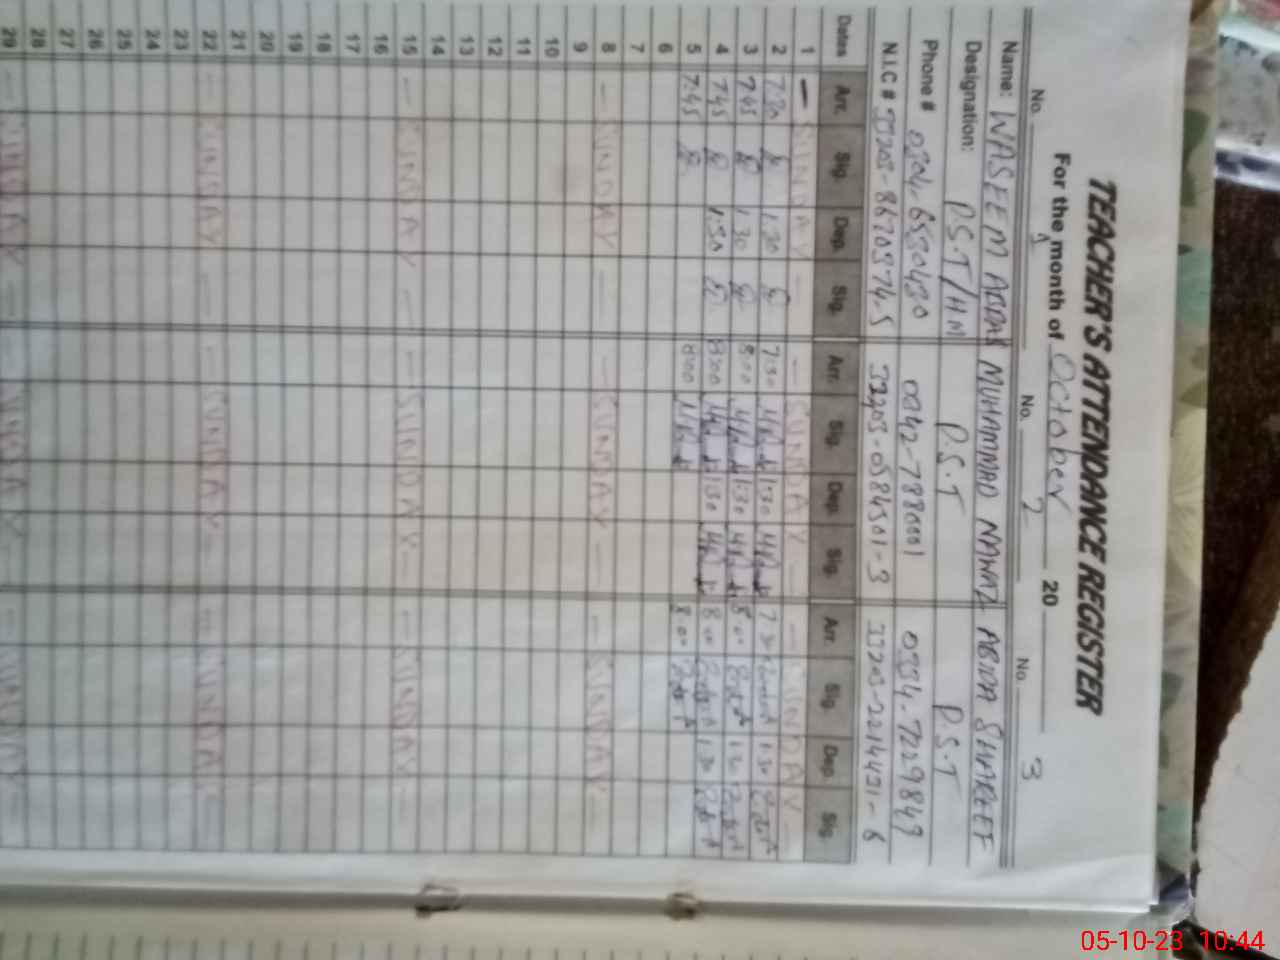 TEACHER'S ATTENDANCE REGISTER
For the month of October 20
No. 1 No. 2 No. 3
Name: WASEEM ABBAS MUHAMMAD NAWAZ ABIDA SHAREEF
Designation: P.S.T/HM P.S.T P.S.T
Phone # 0342-7880001
N.I.C #
Dates Arr. Sig. Dep. Sig. Arr. Sig. Dep. Sig. Arr. Sig. Dep. Sig.
1 — SUNDAY — — SUNDAY — — SUNDAY —
2 7:30 1:30 7:30 1:30 7:30 1:30
3 7:45 1:30 8:00 1:30 8:00 1:30
4 7:45 1:30 8:00 1:30 8:00 1:30
5 7:45 8:00 8:00
6
7
8 — SUNDAY — — SUNDAY — — SUNDAY —
9
10
11
12
13
14
15 — SUNDAY — — SUNDAY — — SUNDAY —
16
17
18
19
20
21
22 — SUNDAY — — SUNDAY — — SUNDAY —
23
24
25
26
27
28
29 — SUNDAY — — SUNDAY — — SUNDAY —
05-10-23 10:44